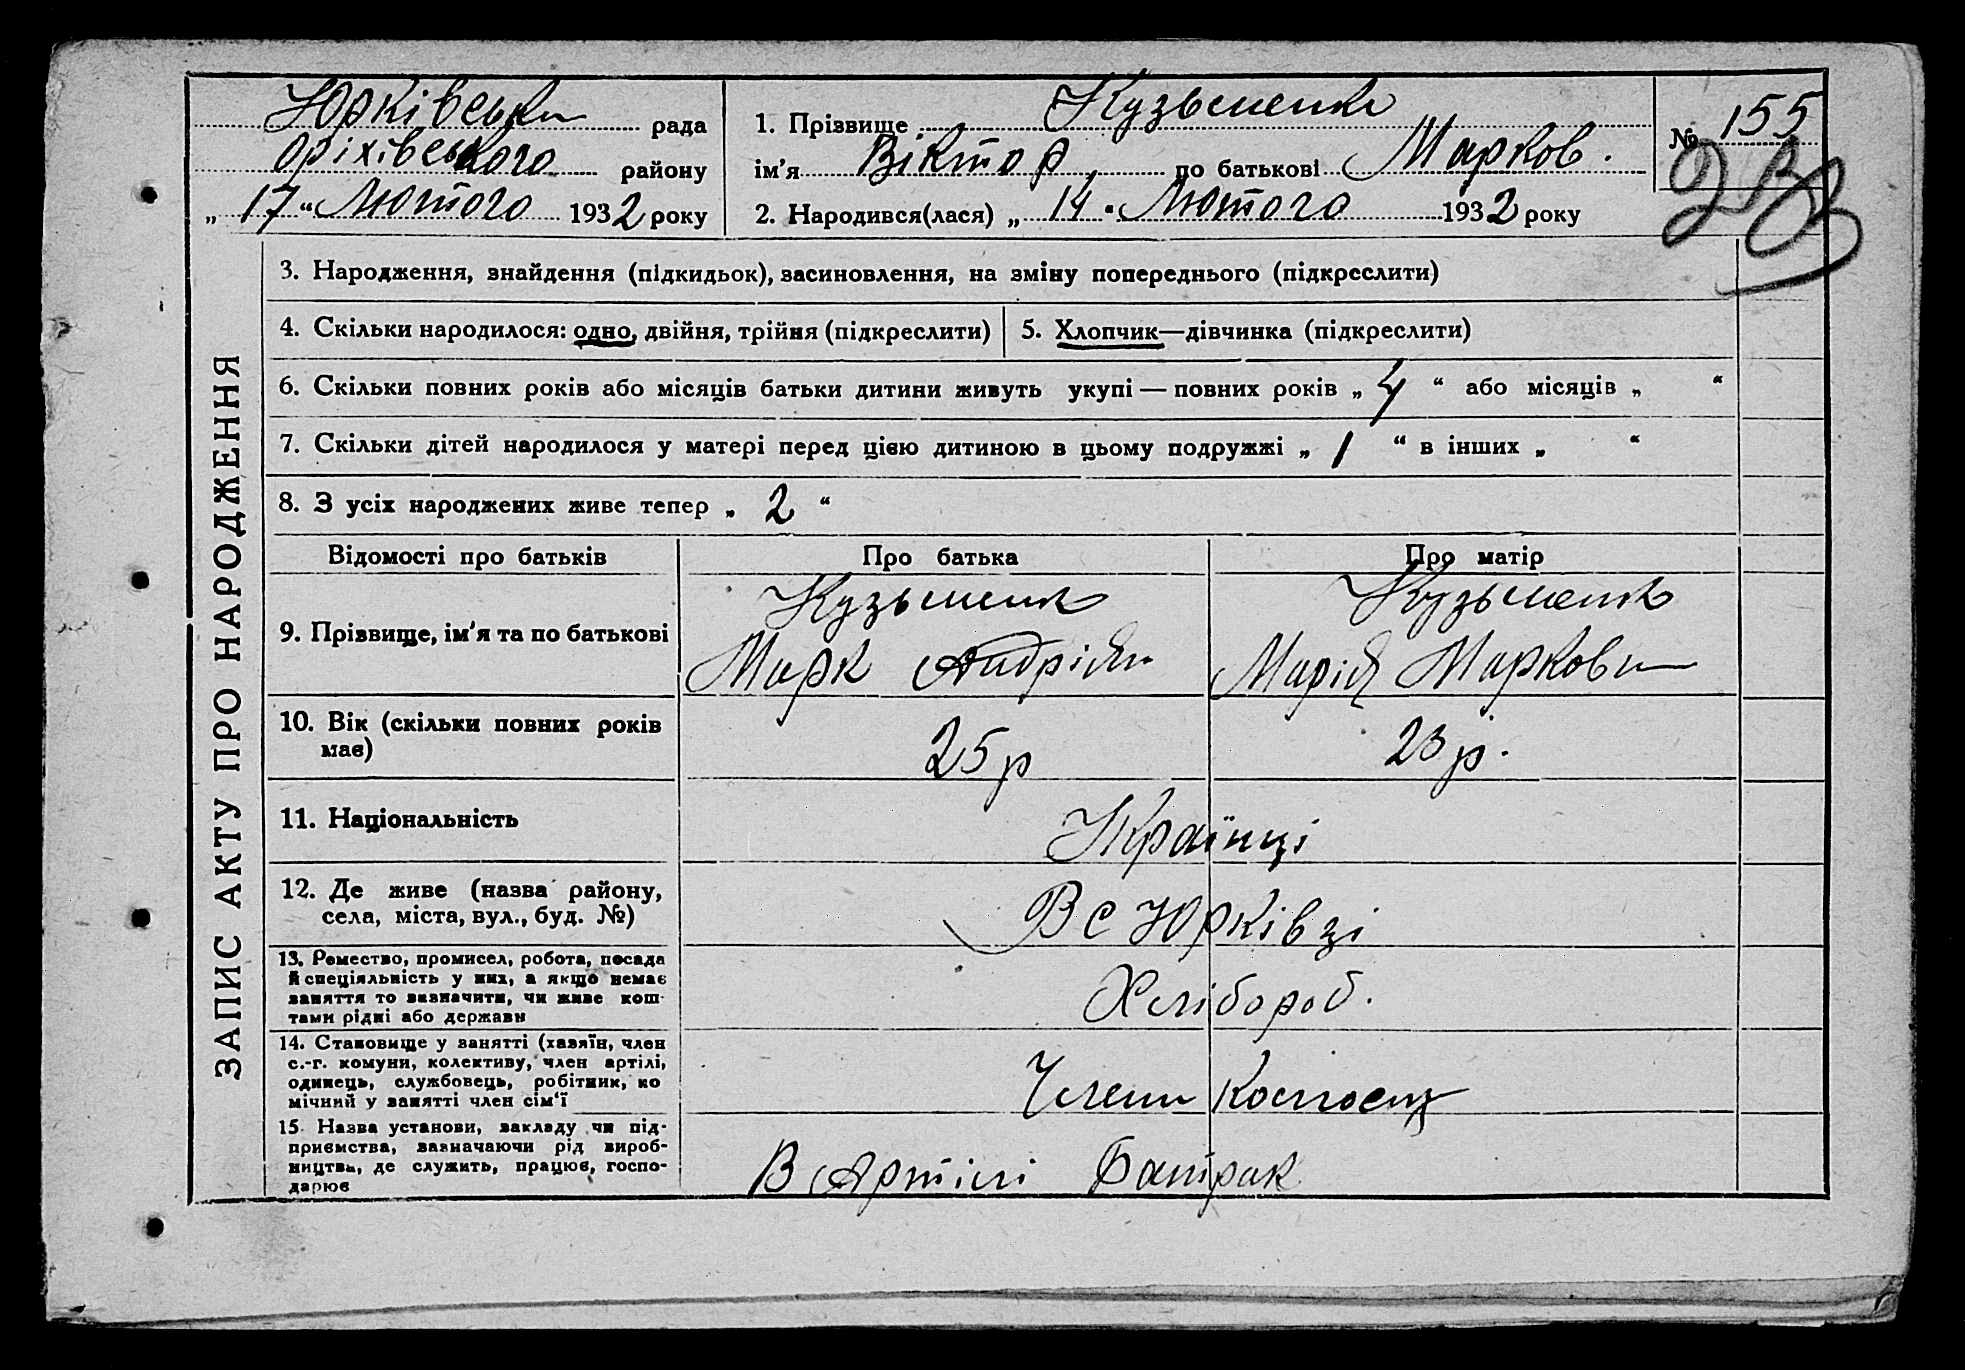 Юрківська рада
Оріхівського району
„ 17 “ Лютого 1932 року
1. Прізвище Кузьменко
ім'я Віктор по батькові Марков.
2. Народився(лася) „ 14 “ Лютого 1932 року
№ 155
ЗАПИС АКТУ ПРО НАРОДЖЕННЯ
3. Народження, знайдення (підкидьок), засиновлення, на зміну попереднього (підкреслити)
4. Скільки народилося: одно, двійня, трійня (підкреслити)
5. Хлопчик—дівчинка (підкреслити)
6. Скільки повних років або місяців батьки дитини живуть укупі — повних років „ 4 “ або місяців „ “
7. Скільки дітей народилося у матері перед цією дитиною в цьому подружжі „ 1 “ в інших „ “
8. З усіх народжених живе тепер „ 2 “
Відомості про батьків Про батька Про матір
9. Прізвище, ім'я та по батькові
Кузьменко
Марк Андрієв
Кузьменко
Марія Маркова
10. Вік (скільки повних років
має)
25 р
23 р.
11. Національність
Українці
12. Де живе (назва району,
села, міста, вул., буд. №)
В с Юрківці
13. Ремество, промисел, робота, посада
й спеціяльність у них, а якщо немає
заняття то визначити, чи живе кош-
тами рідні або держави
Хлібороб.
14. Становище у занятті (хазяїн, член
с.-г. комуни, колективу, член артілі,
одинець, службовець, робітник, по
мічний у занятті член сім'ї
Член
15. Назва установи, закладу чи під-
приємства, зазначаючи рід вироб-
ництва, де служить, працює, госпо-
дарює
В Артілі Батрак